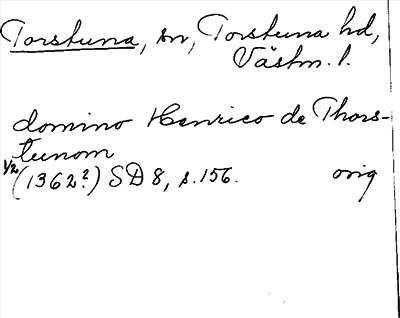 Torstuna, sn, Torstuna hd,
Västm. l.
domino Henrico de Thors-
tunom
1/2 (1362?) SD 8, s. 156. orig